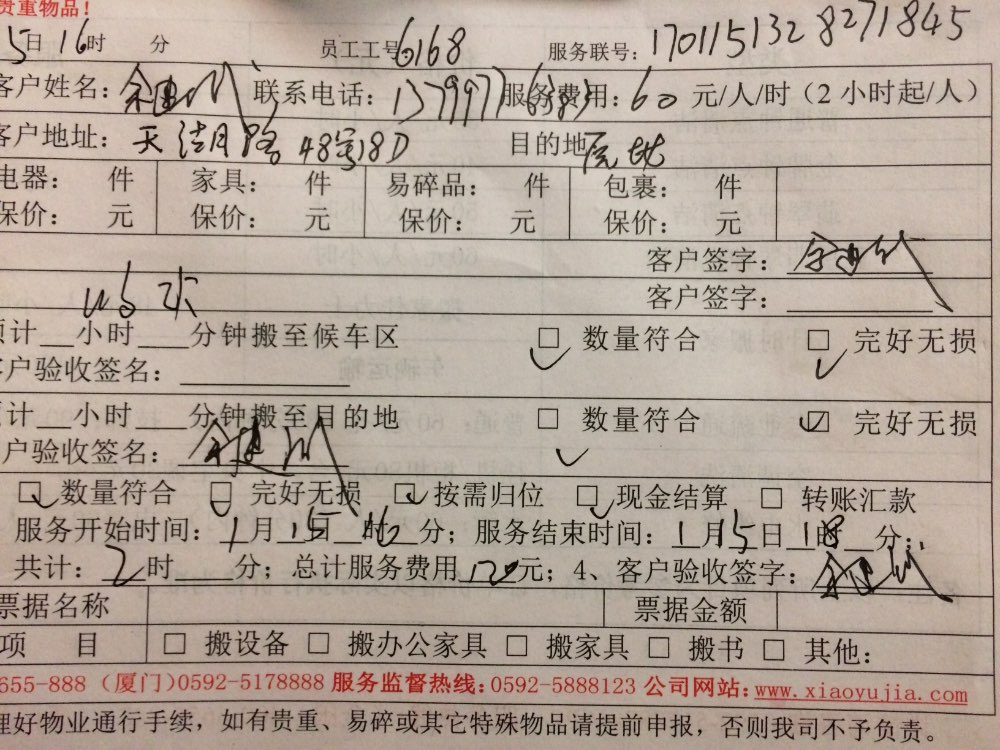 贵重物品！
5日16时 分 员工工号6168 服务联号:1701151328271845
客户姓名: 联系电话: 服务费用: 60元/人/时（2小时起/人）
客户地址: 路48号18D 目的地
电器: 件 家具: 件 易碎品: 件 包裹: 件
保价: 元 保价: 元 保价: 元 保价: 元
客户签字:
客户签字:
预计 小时 分钟搬至候车区 □ 数量符合 □ 完好无损
客户验收签名:
预计 小时 分钟搬至目的地 □ 数量符合 ☑ 完好无损
客户验收签名:
□数量符合 □ 完好无损 □ 按需归位 □现金结算 □ 转账汇款
服务开始时间: 1月15日16时 分; 服务结束时间: 1月15日18时 分;
共计: 2时 分; 总计服务费用120元; 4、客户验收签字:
票据名称 票据金额
项 目 □ 搬设备 □ 搬办公家具 □ 搬家具 □ 搬书 □ 其他:
655-888（厦门)0592-5178888 服务监督热线:0592-5888123 公司网站:www.xiaoyujia.com
理好物业通行手续，如有贵重、易碎或其它特殊物品请提前申报，否则我司不予负责。